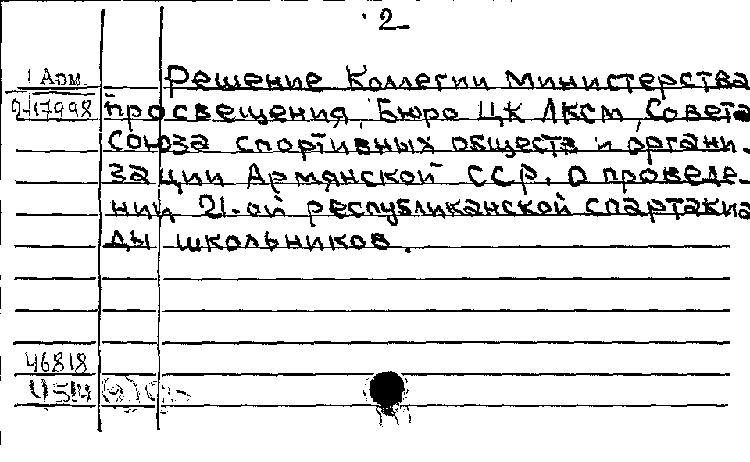 2
1 Арм
2-17998
Решение Коллегии Министерства
просвещения, Бюро ЦК ЛКСМ, Совета
союза спортивных обществ и органи-
зации Армянской ССР. О проведе-
нии 21-ой республиканской спартакиа
ды школьников.
46818